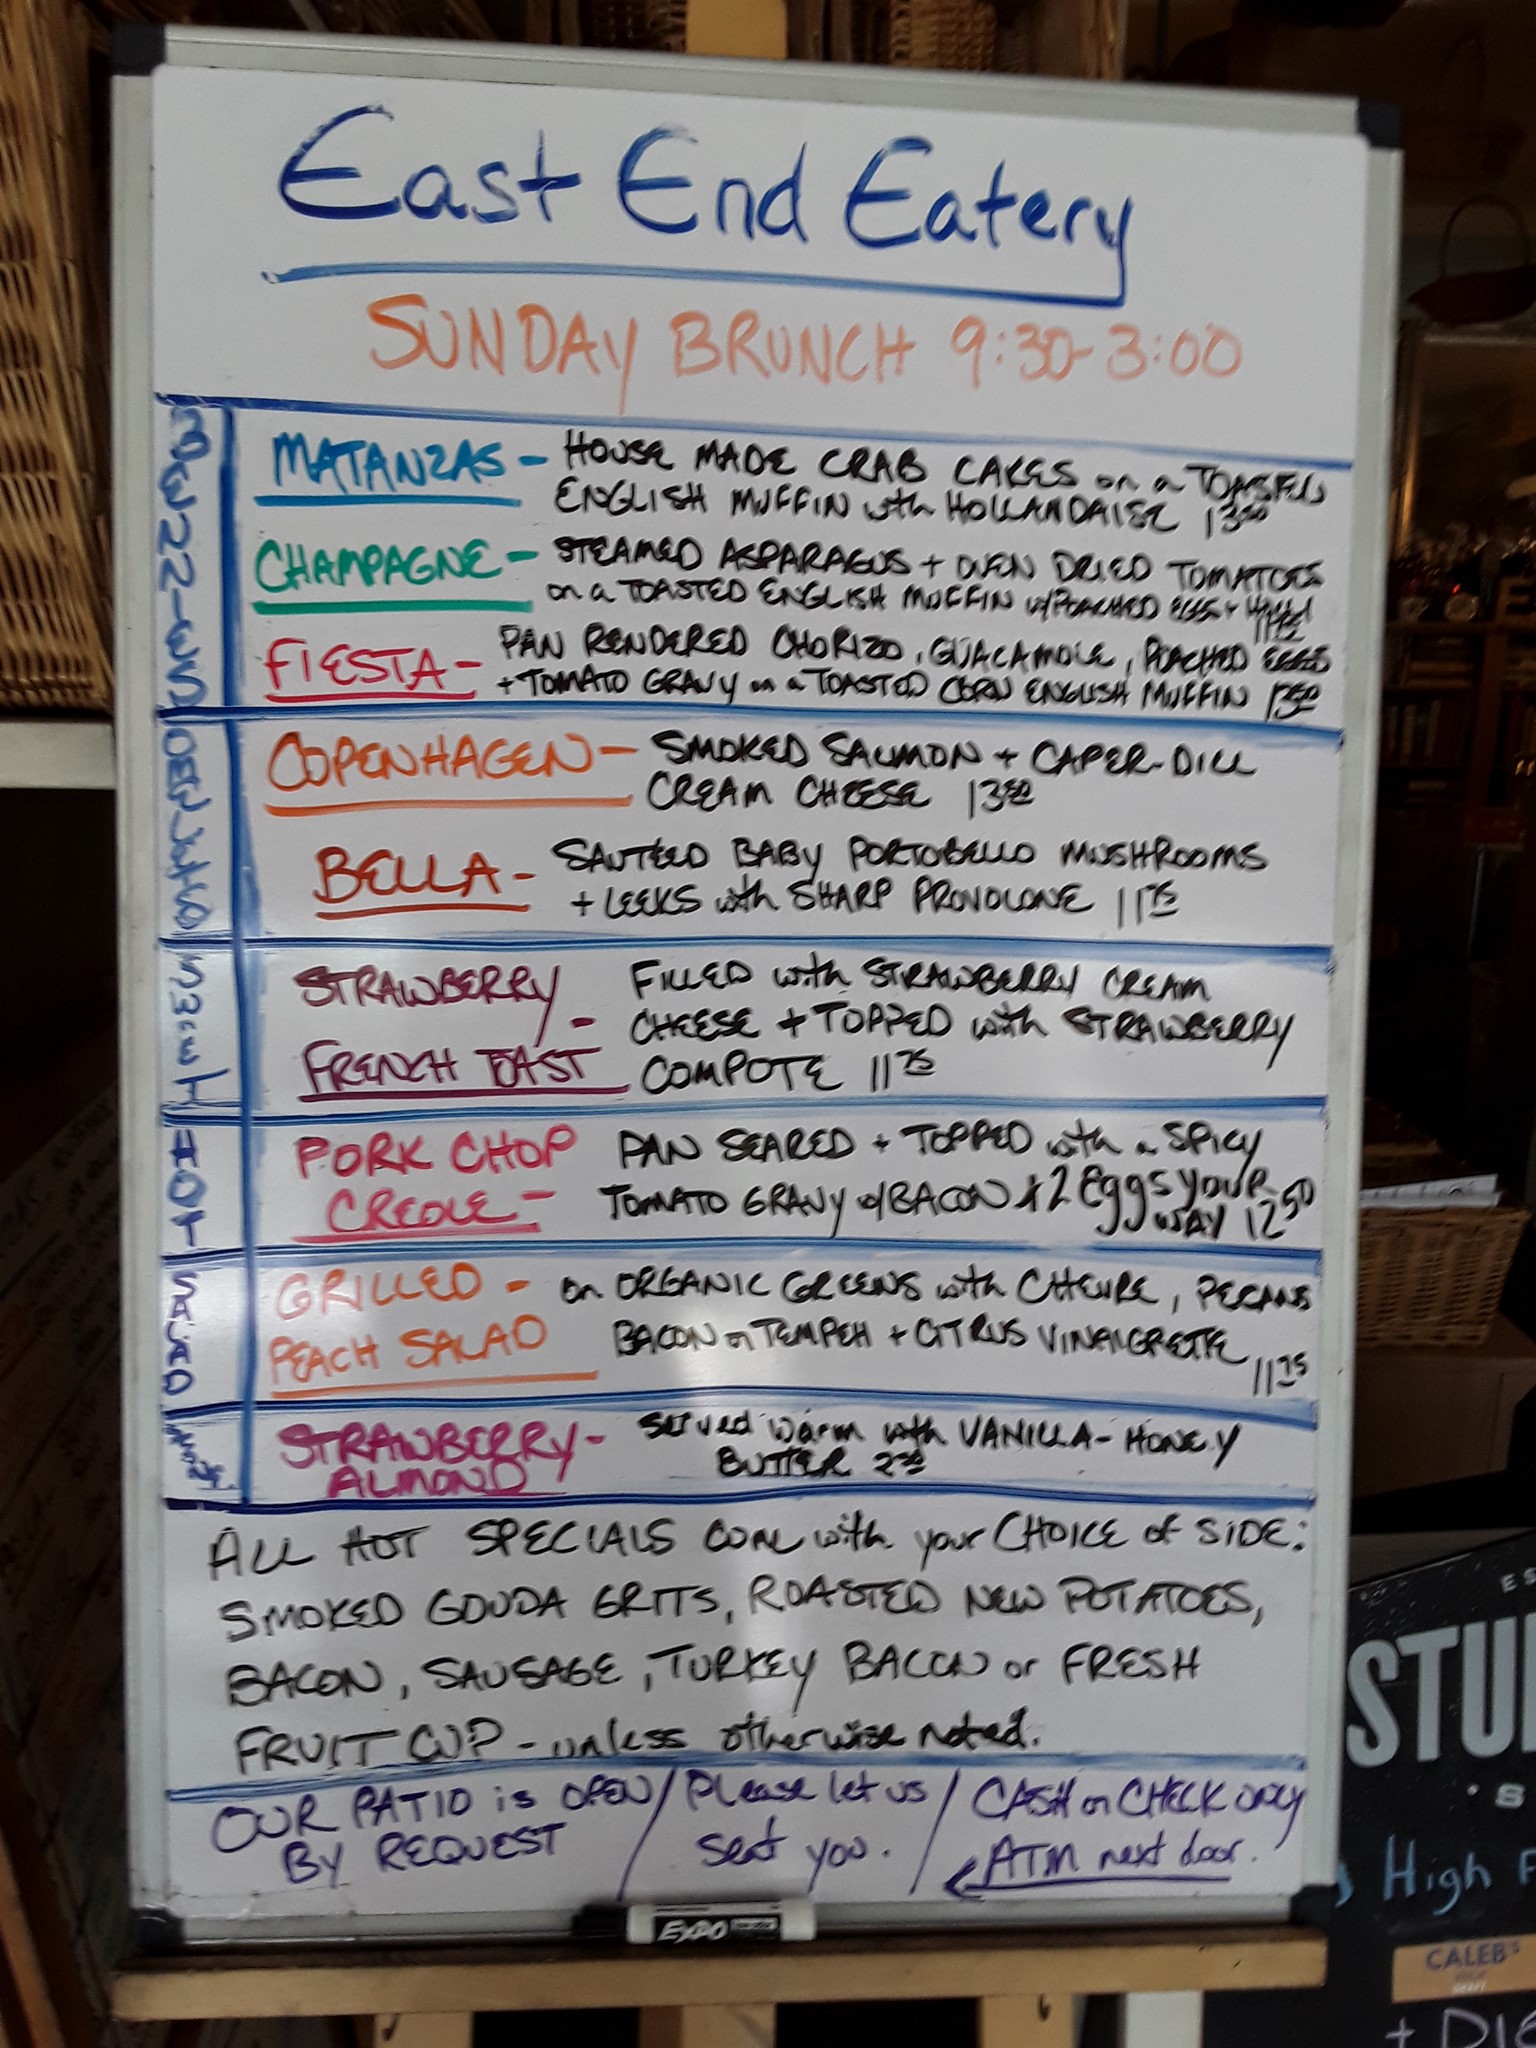 East End Eatery
SUNDAY BRUNCH 9:30-3:00
BENNIES
MATANZAS - HOUSE MADE CRAB CAKES on a TOASTED
ENGLISH MUFFIN with HOLLANDAISE 13 50
CHAMPAGNE - STEAMED ASPARAGUS + OVEN DRIED TOMATOES
on a TOASTED ENGLISH MUFFIN w/POACHED EGGS +
FIESTA - PAN RENDERED CHORIZO, GUACAMOLE, POACHED EGGS
+ TOMATO GRAVY on a TOASTED CORN ENGLISH MUFFIN
OMELETTES
COPENHAGEN - SMOKED SALMON + CAPER-DILL
CREAM CHEESE 13 50
BELLA - SAUTEED BABY PORTOBELLO MUSHROOMS
+ LEEKS with SHARP PROVOLONE 11 75
SWEET
STRAWBERRY - FILLED with STRAWBERRY CREAM
CHEESE + TOPPED with STRAWBERRY
FRENCH TOAST COMPOTE 11 75
HOT
PORK CHOP PAN SEARED + TOPPED with a SPICY
CREOLE - TOMATO GRAVY w/BACON + 2 EggS YOUR
WAY 12 50
SALAD
GRILLED - on ORGANIC GREENS with CHEVRE, PECANS
PEACH SALAD BACON or TEMPEH + CITRUS VINAIGRETTE
11 75
STRAWBERRY - served warm with VANILLA-HONEY
ALMOND BUTTER 2 50
ALL HOT SPECIALS COME with your CHOICE of SIDE:
SMOKED GOUDA GRITS, ROASTED NEW POTATOES,
BACON, SAUSAGE, TURKEY BACON or FRESH
FRUIT CUP - unless otherwise noted.
OUR PATIO is OPEN / Please let us / CASH or CHECK ONLY
BY REQUEST seat you. ATM next door.
EXPO
STU
High
CALEB'S
+ DI